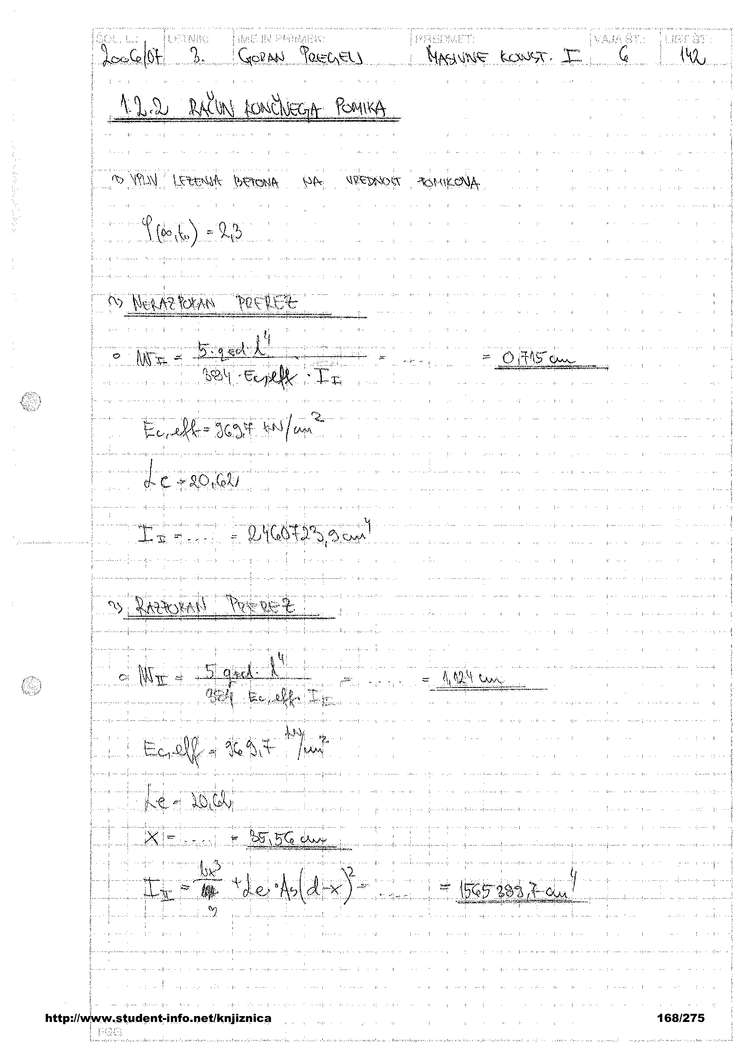 ŠOL. L.: LETNIK: IME IN PRIIMEK: PREDMET: VAJA ŠT.: LIST ŠT.:
2006/07 3. GORAN PREGELJ MASIVNE KONST. I 6 142
1.2.2 RAČUN KONČNEGA POMIKA
~> VPLIV LEZENJA BETONA NA VREDNOST POMIKOVA
φ(∞,t₀) = 2,3
~> NERAZPOKAN PREREZ
° W_I = 5·qed·l⁴ / 384·Ec,eff·I_I = .... = 0,715 cm
Ec,eff = 969,7 kN/cm²
αe = 20,62
I_I = .... = 2460723,9 cm⁴
~> RAZPOKAN PREREZ
° W_II = 5·qed·l⁴ / 384 Ec,eff·I_II = ..... = 1,124 cm
Ec,eff = 969,7 kN/cm²
αe = 20,62
X = ..... = 35,56 cm
I_II = bx³/3 + αe·As(d-x)² = .... = 1565389,7 cm⁴
http://www.student-info.net/knjiznica 168/275
FGG